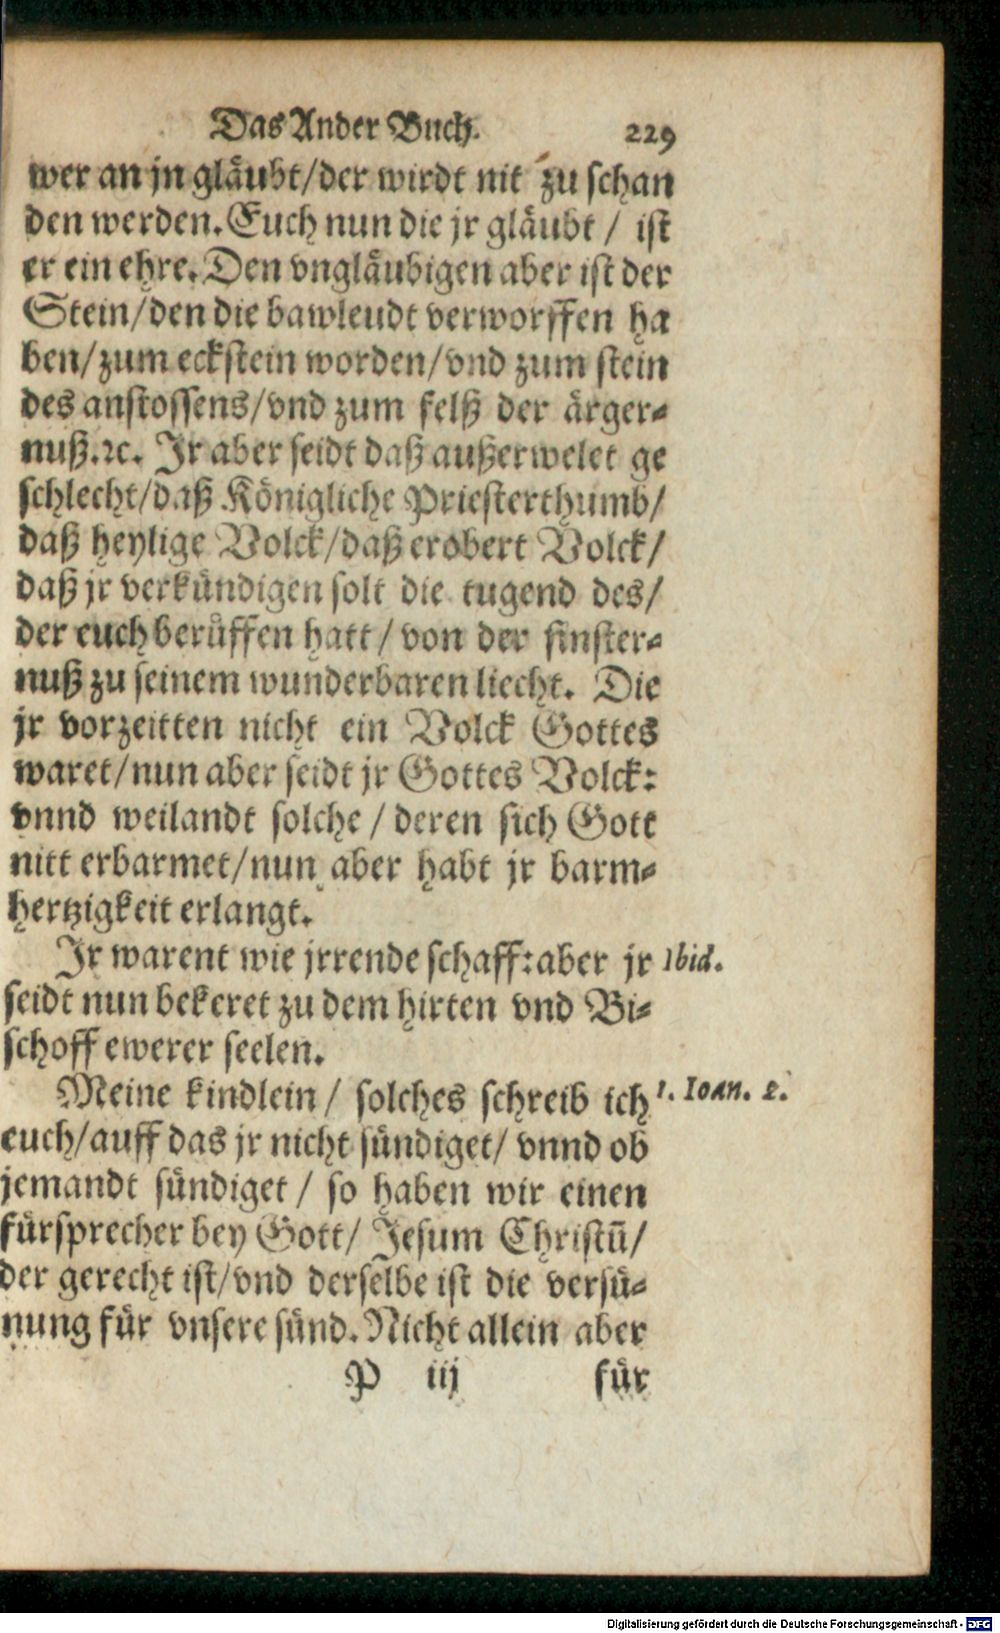 Das Ander Buch. 229
wer an jn gläubt/der wirdt nit zu schan
den werden. Euch nun die jr gläubt / ist
er ein ehre. Den vngläubigen aber ist der
Stein/den die bawleudt verworffen ha
ben/zum eckstein worden/vnd zum stein
des anstossens/vnd zum felß der ärger-
nuß.ꝛc. Jr aber seidt daß außerwelet ge
schlecht/daß Königliche Priesterthumb/
daß heylige Volck/daß erobert Volck/
daß jr verkündigen solt die tugend des/
der euch berüffen hatt / von der finster-
nuß zu seinem wunderbaren liecht. Die
jr vorzeitten nicht ein Volck Gottes
waret/nun aber seidt jr Gottes Volck:
vnnd weilandt solche / deren sich Gott
nitt erbarmet/nun aber habt jr barm-
hertzigkeit erlangt.
Jr warent wie jrrende schaff:aber jr Ibid.
seidt nun bekeret zu dem hirten vnd Bi-
schoff ewerer seelen.
Meine kindlein / solches schreib ich 1. Ioan. 2.
euch/auff das jr nicht sündiget/ vnnd ob
jemandt sündiget / so haben wir einen
fürsprecher bey Gott/ Jesum Christū/
der gerecht ist/vnd derselbe ist die versü-
nung für vnsere sünd. Nicht allein aber
P iij für
Digitalisierung gefördert durch die Deutsche Forschungsgemeinschaft - DFG